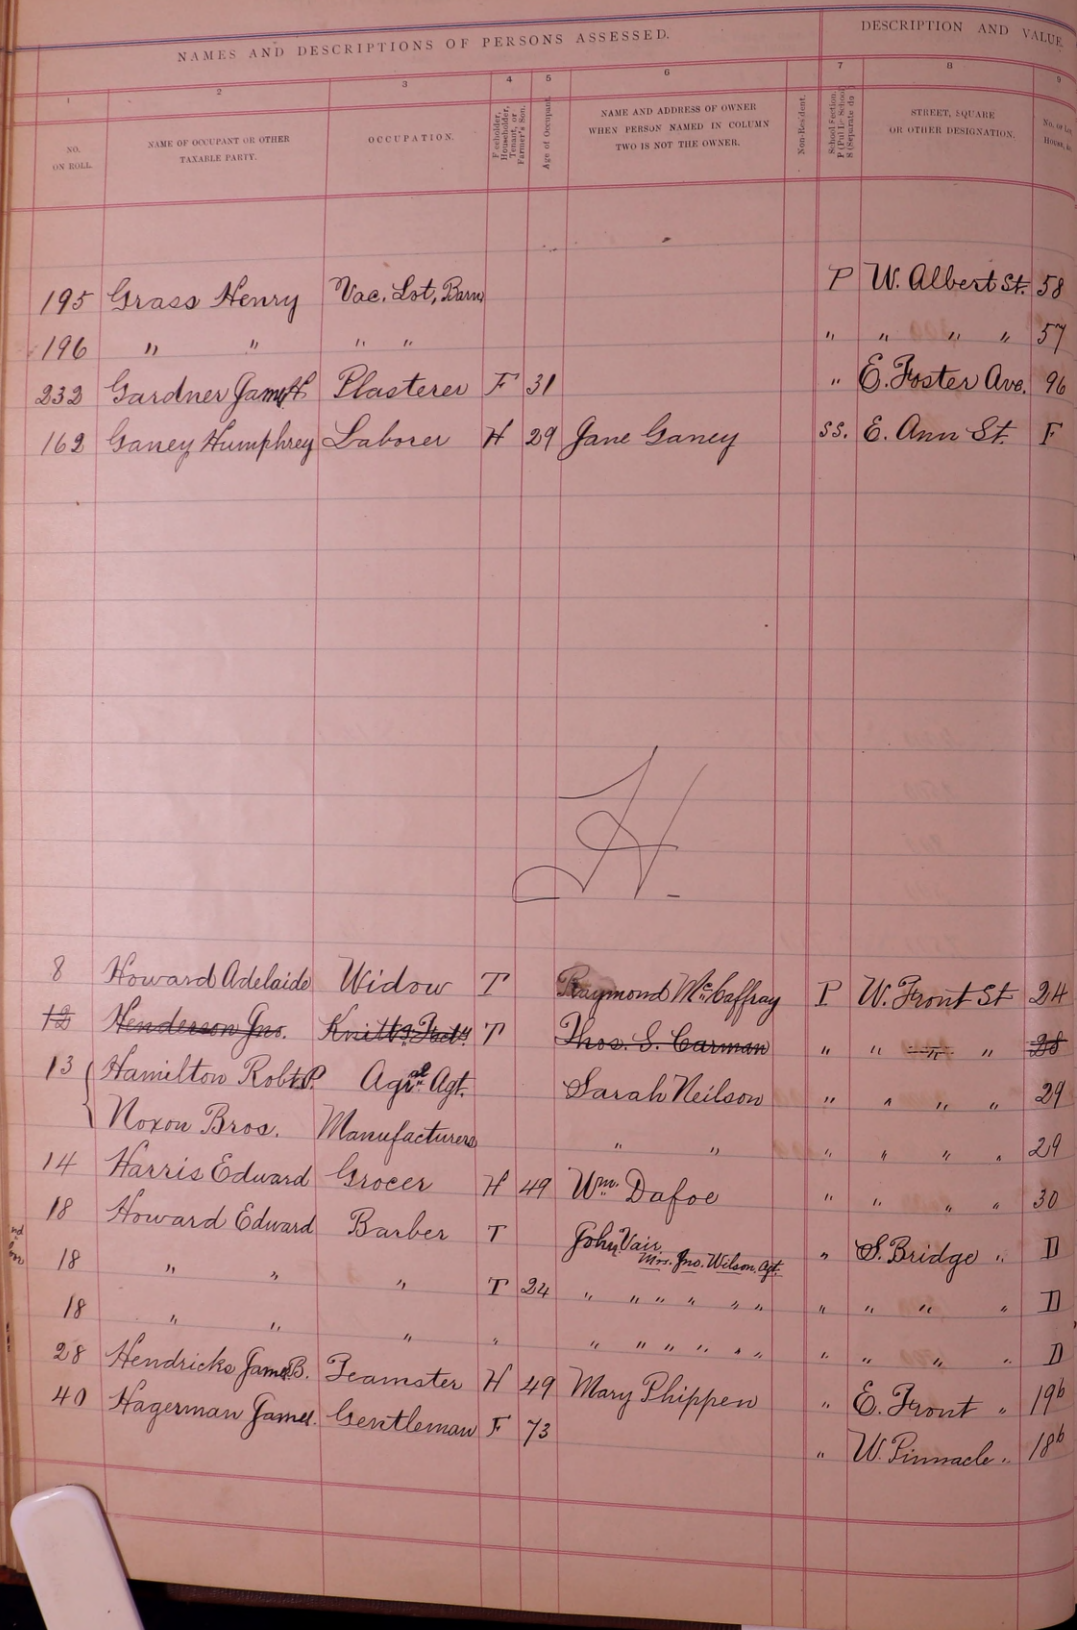 NAMES AND DESCRIPTIONS OF PERSONS ASSESSED. DESCRIPTION AND VALUE
1 2 3 4 5 6 7 8 9
NO. ON ROLL. NAME OF OCCUPANT OR OTHER TAXABLE PARTY. OCCUPATION. Freeholder, Householder, Tenant, or Farmer's Son. Age of Occupant. NAME AND ADDRESS OF OWNER WHEN PERSON NAMED IN COLUMN TWO IS NOT THE OWNER. Non-Resident. School Section. P (Public School) S (Separate do) STREET, SQUARE OR OTHER DESIGNATION. No. of Lot, House, &c
195 Grass Henry Vac. Lot, Barn P W. Albert St. 58
196 " " " " " " " " 57
232 Gardner James H Plasterer F 31 " E. Foster Ave. 96
162 Ganey Humphrey Laborer H 29 Jane Ganey SS. E. Ann St. F
H
8 Howard Adelaide Widow T Raymond McCaffray P W. Front St 24
12 Henderson Jno. Knittg. Facty T Thos. S. Carman " " " " 28
13 Hamilton Robt. P. Agral Agt. Sarah Neilson " " " " 29
Noxon Bros. Manufacturers " " " " " " 29
14 Harris Edward Grocer H 49 Wm. Dafoe " " " " 30
18 Howard Edward Barber T John Vair " S. Bridge " D
Mrs. Jno. Wilson, Agt.
18 " " " T 24 " " " " " " " " " " D
18 " " " " " " " " " " " " " " D
28 Hendricks James B. Teamster H 49 Mary Phippen " E. Front " 19b
40 Hagerman James. Gentleman F 73 " W. Pinnacle " 18b